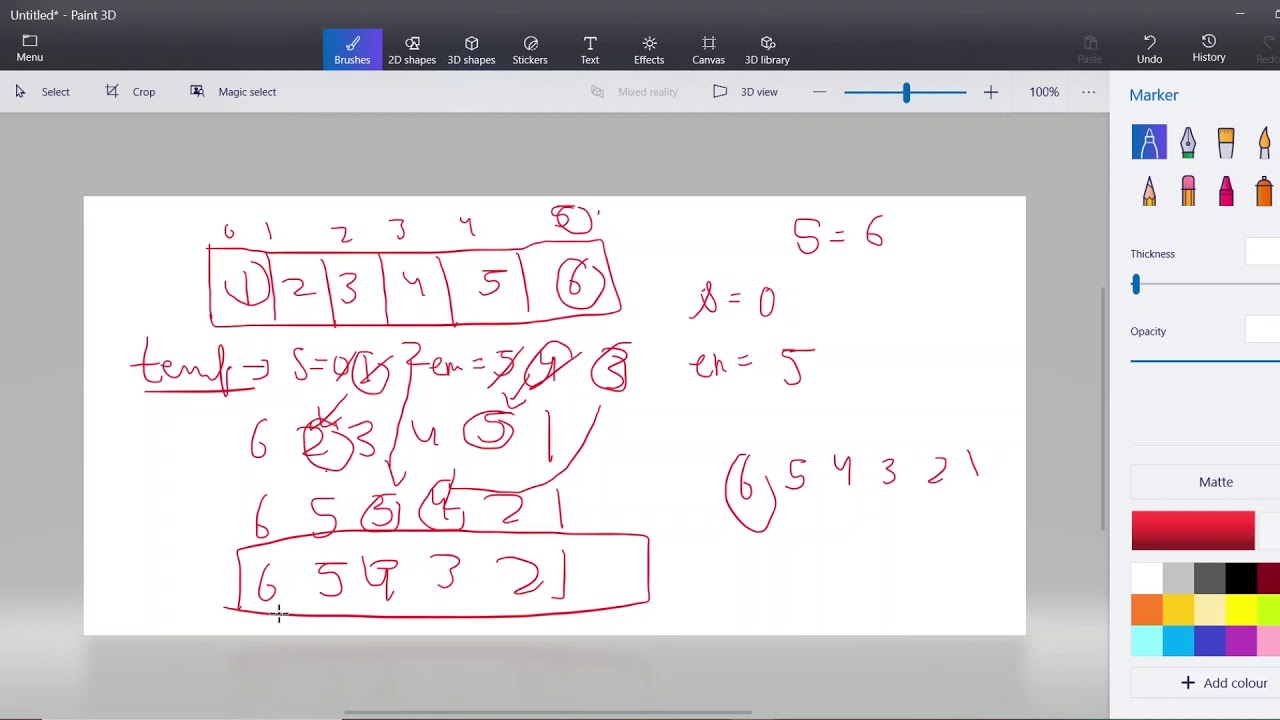 Untitled* - Paint 3D
Menu
Brushes
2D shapes
3D shapes
Stickers
Text
Effects
Canvas
3D library
Paste
Undo
History
Redo
Select
Crop
Magic select
Mixed reality
3D view
100%
Marker
Thickness
Opacity
Matte
Add colour
0 1 2 3 4 5
1 2 3 4 5 6
5 = 6
s = 0
temp → s=0 1 2 en = 5 4 3
en = 5
6 2 3 4 5 1
6 5 4 3 2 1
6 5 3 4 2 1
6 5 4 3 2 1